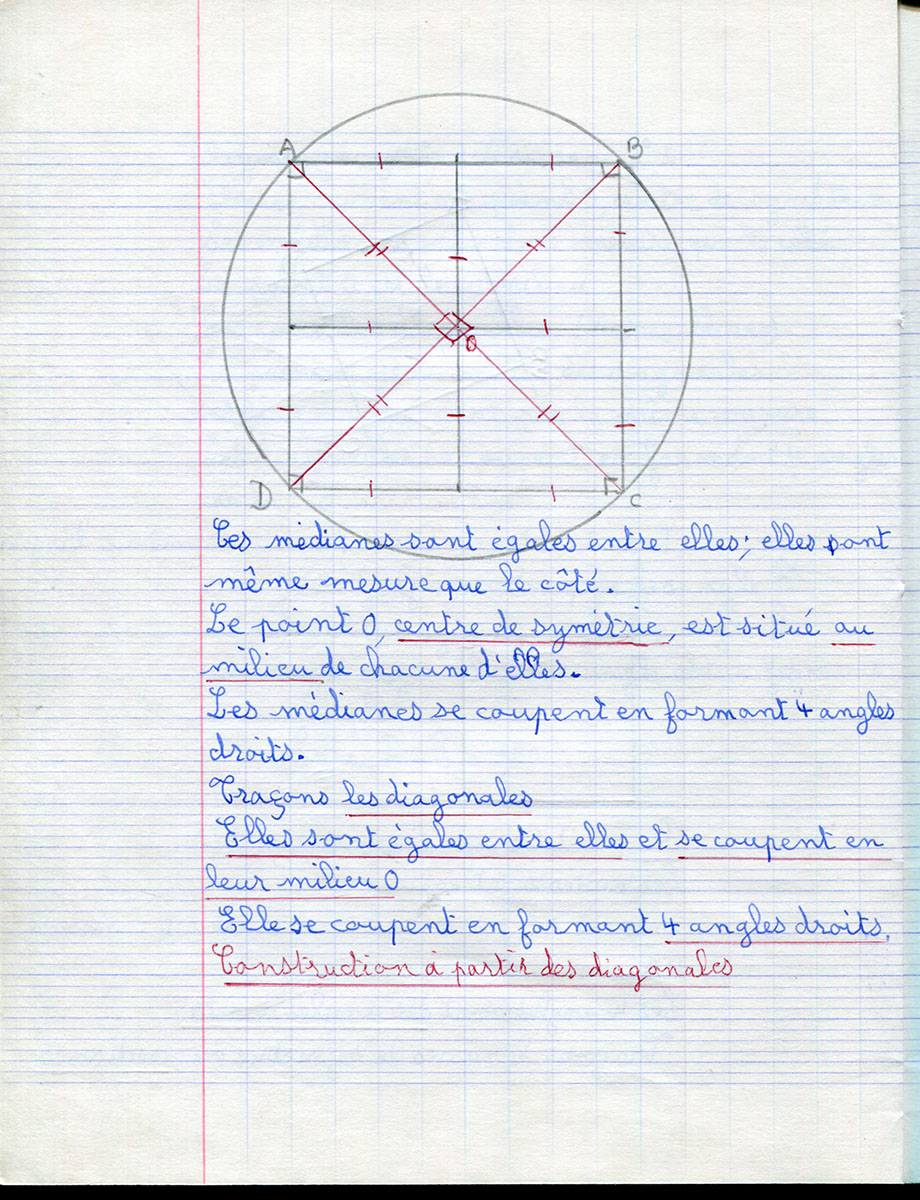 A
B
O
D
C
Les médianes sont égales entre elles; elles ont
même mesure que le côté.
Le point O, centre de symétrie, est situé au
milieu de chacune d'elles.
Les médianes se coupent en formant 4 angles
droits.
Traçons les diagonales
Elles sont égales entre elles et se coupent en
leur milieu O
Elle se coupent en formant 4 angles droits.
Construction à partir des diagonales